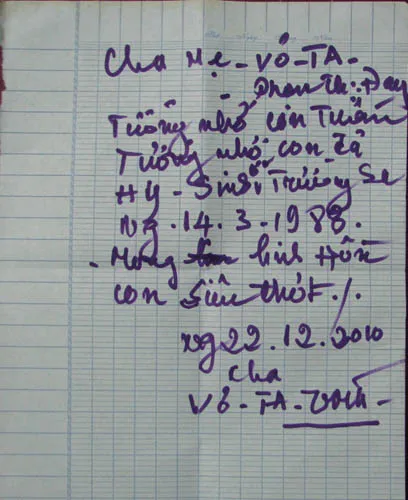 Cha Mẹ - VỎ - TA -
- Phan Thị Đay
Tưởng nhớ con Tuấn
Tưởng nhớ con Đã
Hy - Sinh ở Trường Sa
Ng. 14.3-1988.
. Mong linh Hồn
con Siêu thót ./.
ng 22.12.2010
Cha
VỎ - TA -